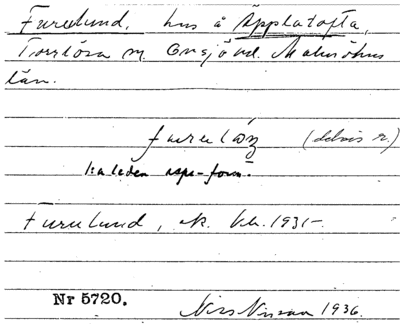 Furulund, hus å Äpplatofta,
Torrlösa sn. Onsjö hd. Malmöhus
län.
(delvis r.)
1:a leden rspr-form.
Furulund, ek. kb. 1931-
Nr 5720.
Nils Nilsson 1936.